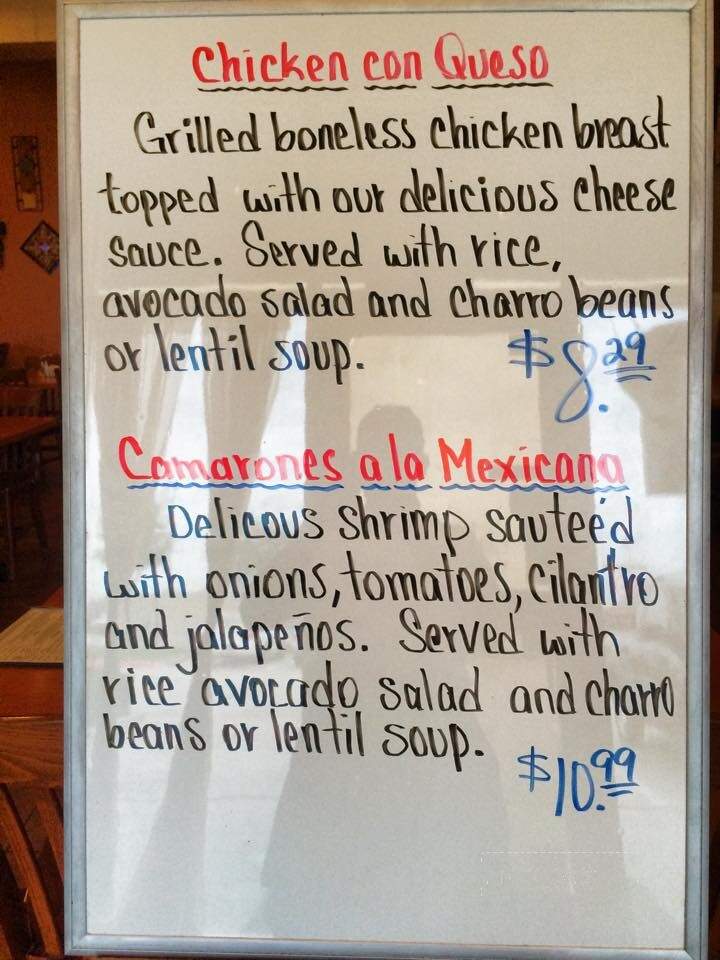 Chicken con Queso
Grilled boneless chicken breast
topped with our delicious cheese
sauce. Served with rice,
avocado salad and charro beans
or lentil soup. $8.29
Camarones a la Mexicana
Delicous shrimp sauteéd
with onions, tomatoes, cilantro
and jalapeños. Served with
rice avocado salad and charro
beans or lentil soup.
$10.99